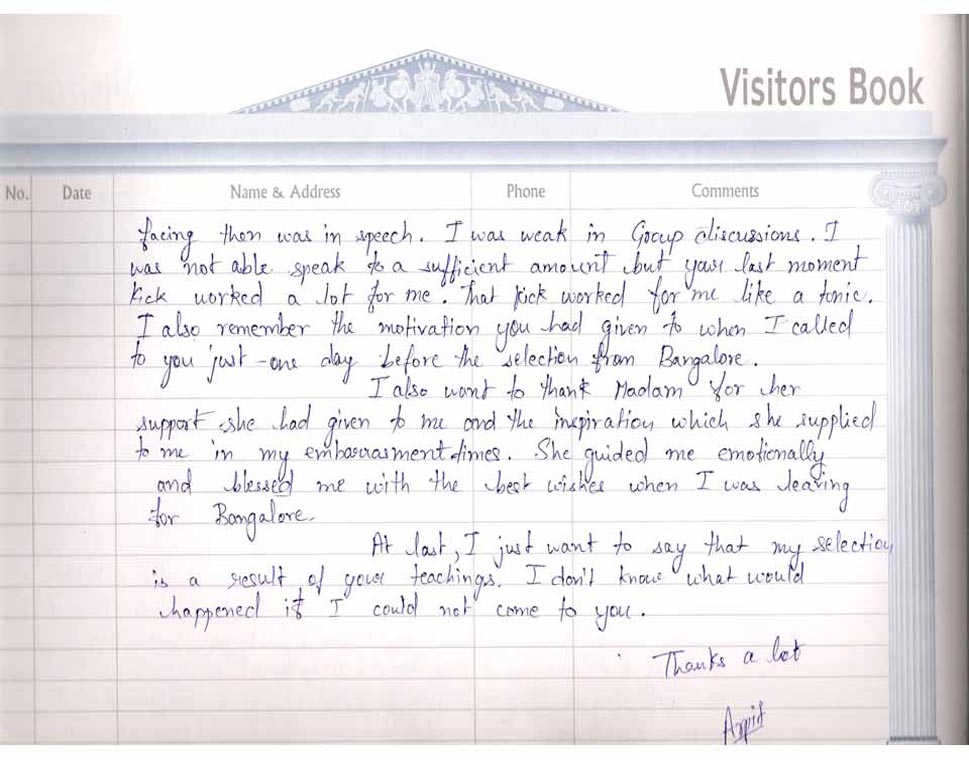 Visitors Book
No. Date Name & Address Phone Comments
facing then was in speech. I was weak in Group discussions. I
was not able speak to a sufficient amount but your last moment
kick worked a lot for me. That kick worked for me like a tonic.
I also remember the motivation you had given to when I called
to you just one day before the selection from Bangalore.
I also want to thank Madam for her
support she had given to me and the inspiration which she supplied
to me in my embarrasment times. She guided me emotionally
and blessed me with the best wishes when I was leaving
for Bangalore.
At last, I just want to say that my selection
is a result of your teachings. I don't know what would
happened if I could not come to you.
Thanks a lot
Arpit